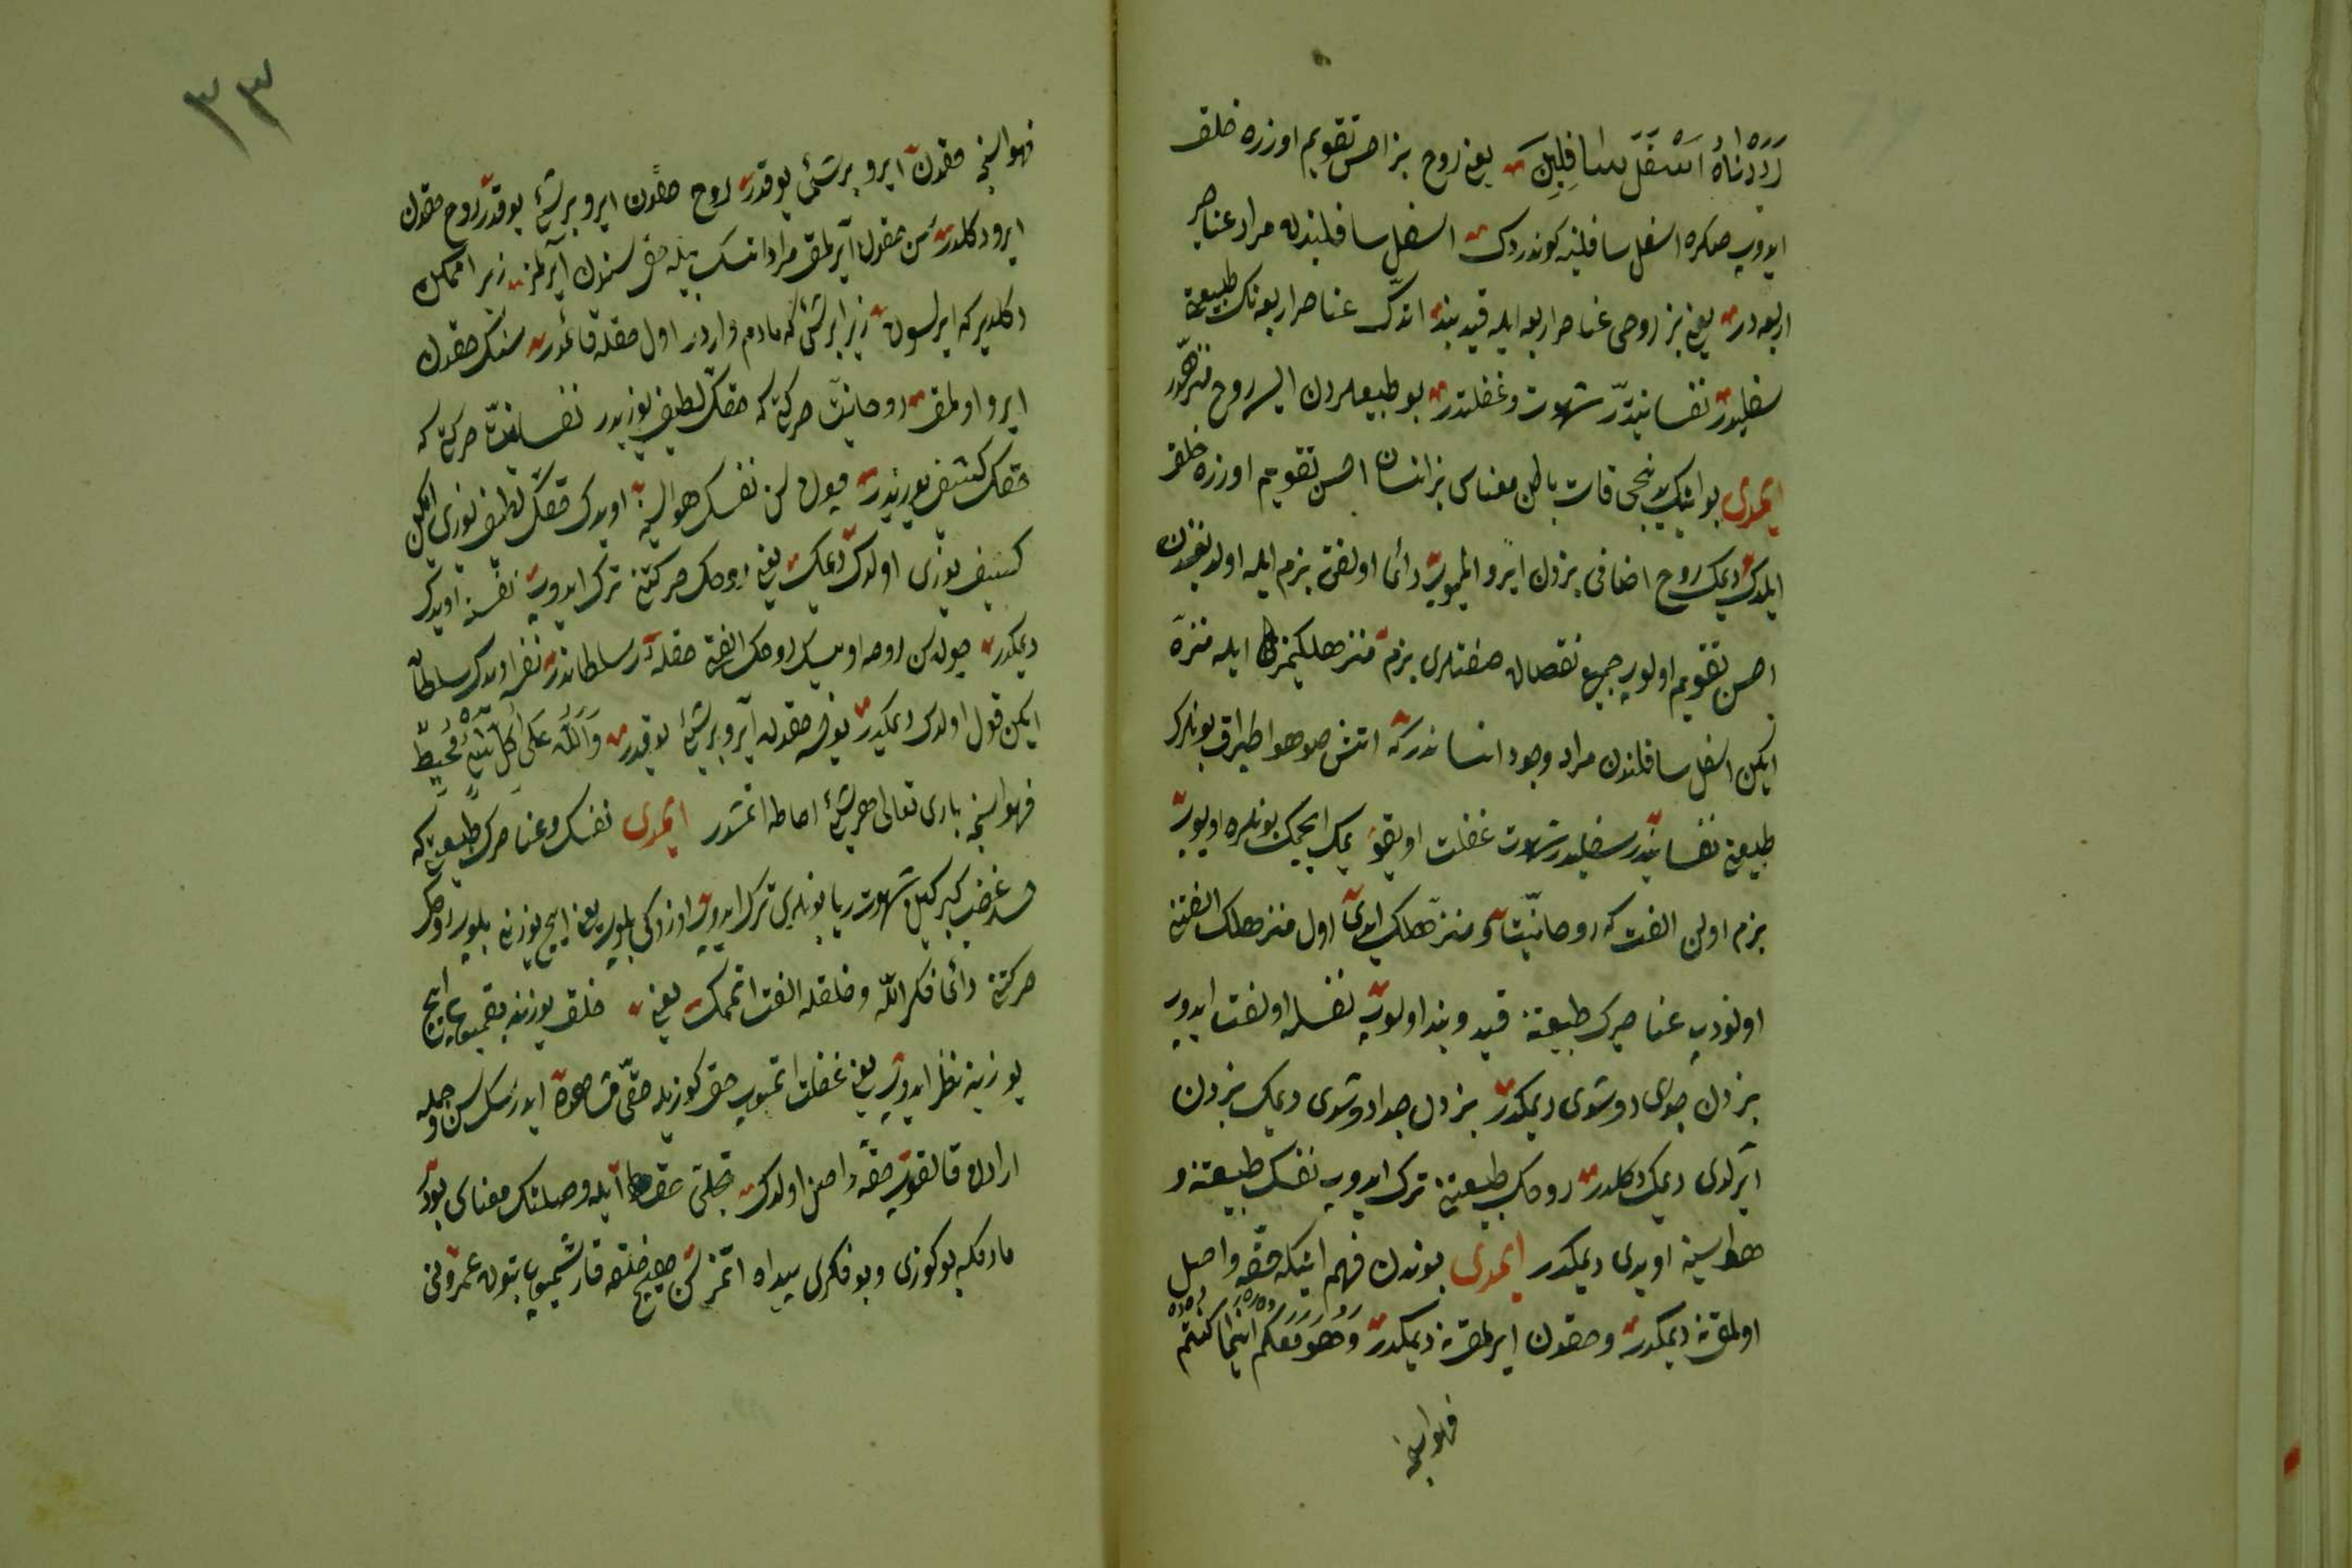 رَدَدْنَاهُ اَسْفَلَ سَافِلِينَ يعنى روح بز احسن تقويم اوزره خلق
ايدوب صكره اسفل سافلينه كوندردك اسفل سافليندن مراد عناصر
اربعه در يعنى بز روحى عناصر اربعه ايله قيد بند اتدك عناصر اربعه نك طبيعتى
سفليدر نفسانيدر شهوت و غفلتدر بو طبيعلردن ايسه روح منزهدر
ايمدى بو ايتك بنجى قات باطن معناسى بز انسان احسن تقويم اوزره خلق
ايلدك ديمك روح اضافى بزدن ايرو ايلميوب دائما اولفتى بزم ايله اولديغندن
احسن تقويم اولوب جميع نقصان صفتلرى بزم منزهلكيمز ايله منزه
ايكن اسفل سافلندن مراد وجود انساندر كه اتش صو هوا طپراق بونلرك
طبيعتى نفسانيدر سفليدر شهوت غفلت اويقو يمك ايچمك بونلره اويوب
بزم اولن الفت كه روحانيت و منزهلك ايدى اول منزهلك الفتنى
اونودب عناصرك طبيعتنه قيد و بند اولوب نفسله اولفت ايدوب
بزدن جدا دوشدى ديمكدر بزدن جدا دوشدى ديمك بزدن
آيرلدى ديمك دكلدر روحك طبيعتنى ترك ايدوب نفسك طبيعتنه و
هواسينه اويدى ديمكدر ايمدى بوندن فهم ايتكه حقه واصل
اولمق نه ديمكدر و حقدن ايرلمق نه ديمكدر وَهُوَ مَعَكُمْ اَيْنَمَا كُنْتُمْ
فهواسنجه
٣٣
فهواسنجه حقدن ايرو بر شئ يوقدر روح حقدن ايرو بر شئ يوقدر روح حقدن
ايرو دكلدر سن حقدن آيرلمق مراد اتسك بيله حق سندن آيرلمز زيرا ممكن
دكلدير كه ايرلسون زيرا بر شئ كه مادام واردر اول حقله قائمدر سنك حقدن
ايرو اولمق روحانيت حركتى كه حقك لطيف يوزيدر نفسانيت حركتى كه
حقك كثيف يوزيدر چون سن نفسك هواسينه اويدك حقك لطيف يوزى ايكن
كثيف يوزى اولدك ديمك يعنى روحك حركتنى ترك ايدوب نفسه اويدك
ديمكدر چون سن روحه اويسك روحك الفتى حقله در سلطاندر نفسه اويدك سلطان
ايكن قول اولدك ديمكدر يوقسه حقدن آيرو بر شئ يوقدر وَاللّٰهُ عَلَى كُلِّ شَيْءٍ مُحِيطٌ
فهواسنجه بارى تعالى هر شئ احاطه اتمشدر ايمدى نفسك و عناصرك طبيعتى كه
حسد غضب كبر كين شهوت ريا بونلرى ترك ايدوب اوزكى بلوب يعنى ايچ يوزنى بلوب روحك
حركتى دائما فكر الله و خلقله الفت اتممك يعنى خلق يوزينه بقميوب ايچ
يوزينه نظر ايدوب يعنى غفلت اتميوب حق كوزيله حقى مشاهده ايدرسك سن و جمله
ارادن قالقوب حقه واصل اولدك تجلى حق ايله وصلتك معناسى بودر
مادمكه بو كوزى و بو فكرى پيدا اتمز سن هيچ خلقه قارشميوب بتون عمرونى